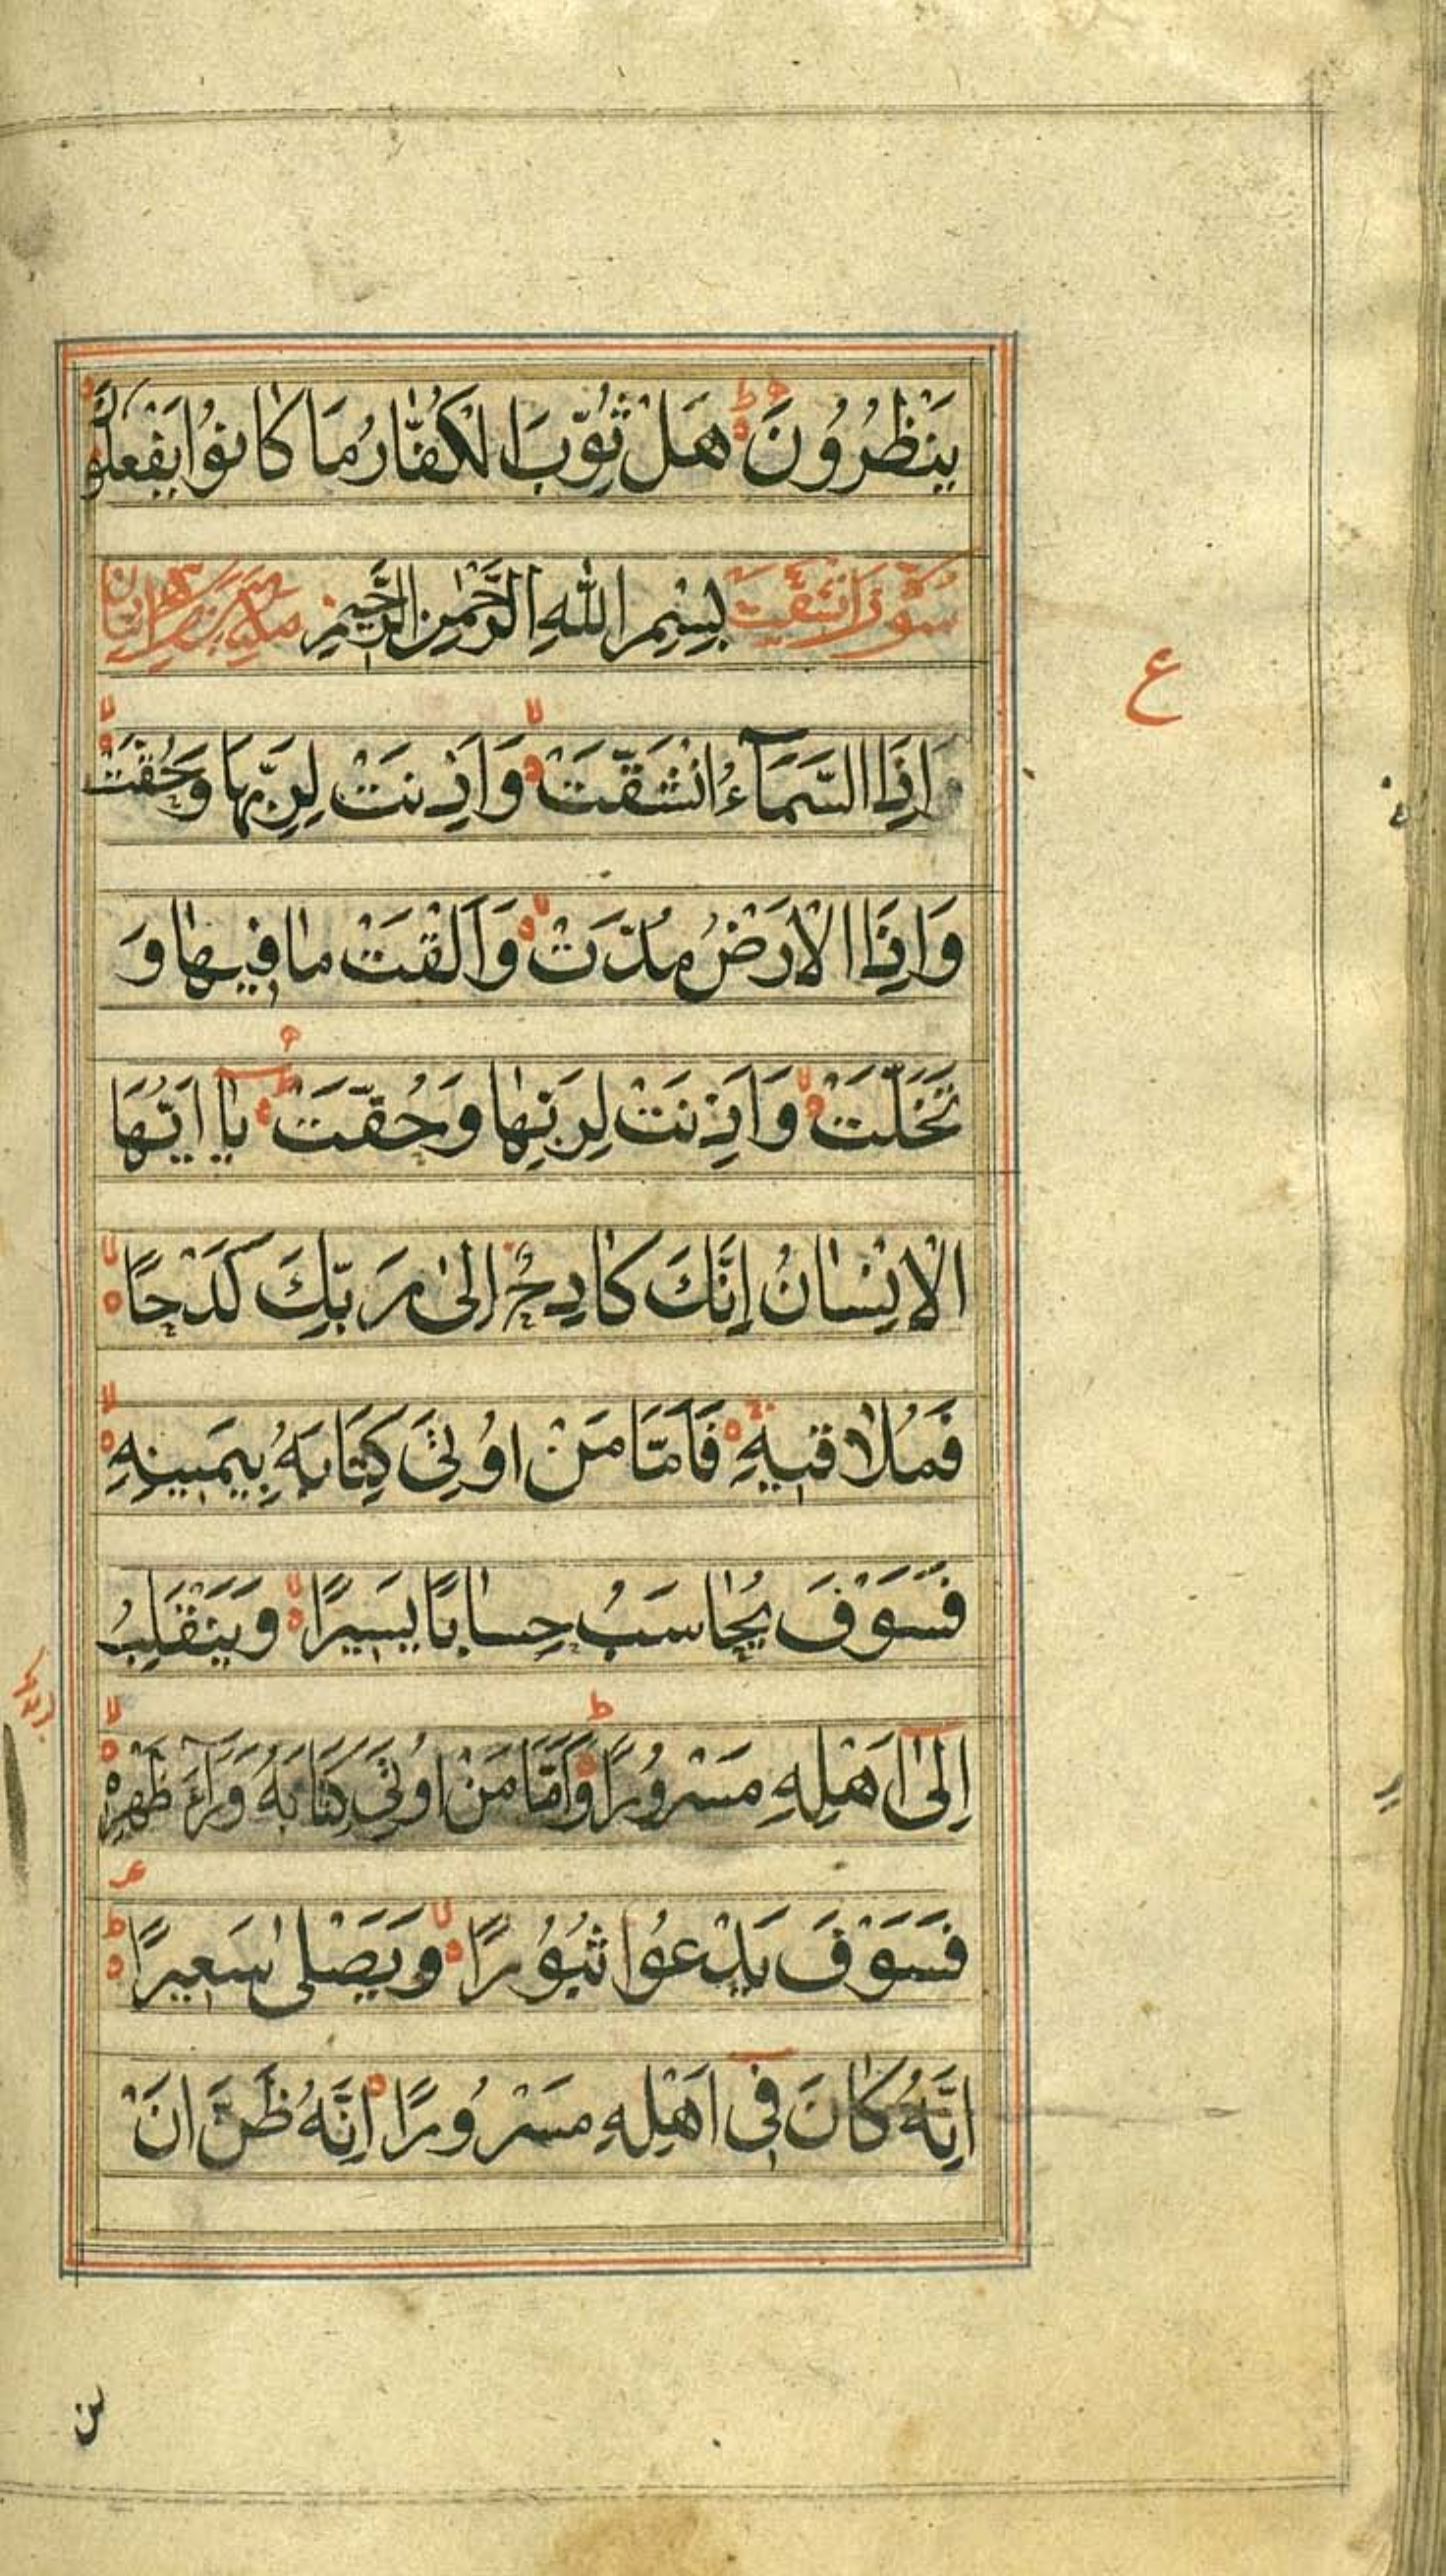 يَنْظُرُونَ هَلْ ثُوِّبَ الْكُفّٰارُ مَا كٰانُوْا يَفْعَلُوْنَ
سُوْرَةُ انْشَقَّتْ بِسْمِ اللّٰهِ الرَّحْمٰنِ الرَّحِيْمِ
وَاِذَا السَّمَآءُ انْشَقَّتْ وَاَذِنَتْ لِرَبِّهَا وَحُقَّتْ
وَاِذَا الْاَرْضُ مُدَّتْ وَاَلْقَتْ مٰا فِيهٰا وَ
تَخَلَّتْ وَاَذِنَتْ لِرَبِّهٰا وَحُقَّتْ يٰا اَيُّهَا
الْاِنْسٰانُ اِنَّكَ كٰادِحٌ اِلىٰ رَبِّكَ كَدْحًا
فَمُلٰاقِيهِ فَاَمَّا مَنْ اُوْتِيَ كِتَابَهُ بِيَمِينِهِ
فَسَوْفَ يُحٰاسَبُ حِسٰابًا يَسِيرًا وَيَنْقَلِبُ
اِلىٰٓ اَهْلِهِ مَسْرُورًا وَاَمَّا مَنْ اُوتِيَ كِتَابَهُ وَرَآءَ ظَهْرِهِ
فَسَوْفَ يَدْعُوا ثُبُوْرًا وَيَصْلىٰ سَعِيرًا
اِنَّهُ كٰانَ فِىٓ اَهْلِهِ مَسْرُورًا اِنَّهُ ظَنَّ اَنْ
ع
لن